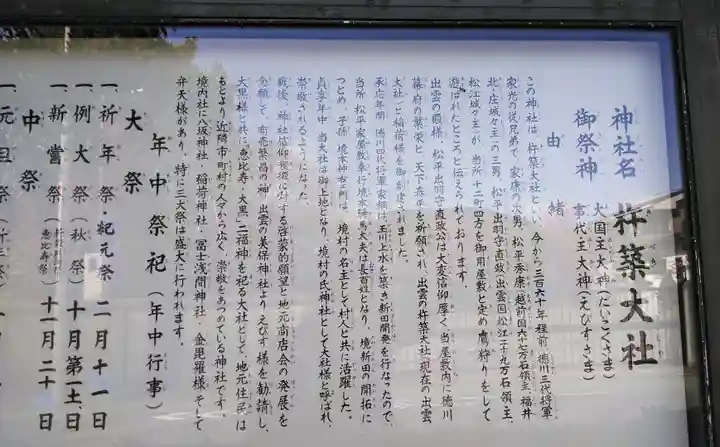 神社名 杵築大社
きづき
御祭神 大国主大神(だいこくさま)
事代主大神(えびすさま)
由緒
この神社は、杵築大社といい、今から三百六十年程前、徳川三代将軍
家光の従兄弟で、家康の次男、松平秀康(越前国六十七万石領主、福井
北ノ庄城々主)の三男、松平出羽守直政(出雲国松江二十九万石領主、
松江城々主)が、当所十二町四方を御用屋敷と定め鷹狩りをして
遊ばれたところと伝えられております。
出雲の殿様、松平出羽守直政公は大変信仰厚く、当屋敷内に徳川
幕府の繁栄と、天下泰平を祈願され、出雲の杵築大社(現在の出雲
大社)ご稲荷様を御創建されました。
承応年間、徳川四代将軍家綱は、玉川上水を築き新田開発を行なったので、
当所、松平家屋敷奉行境本絺馬太夫は長百姓となり、境新田の開拓に
つとめ、子孫、境本神右ェ門は、境村の名主として村人と共に活躍した。
貞享年中、当大社は御上地となり、境村の氏神社として大社様と呼ばれ、
崇敬されるようになった。
戦後、神社信仰復揚に対する啓蒙的願望と地元商店会の発展を
念願して、商売繁昌の神、出雲の美保神社よりえびす様を勧請し、
大黒様と共に恵比寿、大黒、二福神を祀る大社として、地元住民は
もとより、近隣市町村の人々から広く、崇敬をあつめている神社です。
境内社に八坂神社、稲荷神社、冨士浅間神社、金毘羅様、そして
弁天様があり、特に三大祭は盛大に行われます。
年中祭祀(年中行事)
大祭
一、祈年祭・紀元祭 二月十一日
一、例大祭(秋祭) 十月第一土、日
一、新嘗祭(恵比寿祭) 十一月二十日
中祭
一、元旦祭